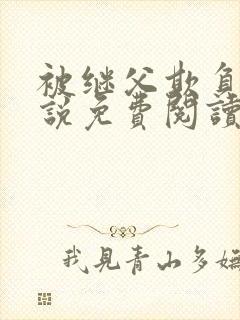 被继父欺負
說免費閱讀
我見青山多嫵